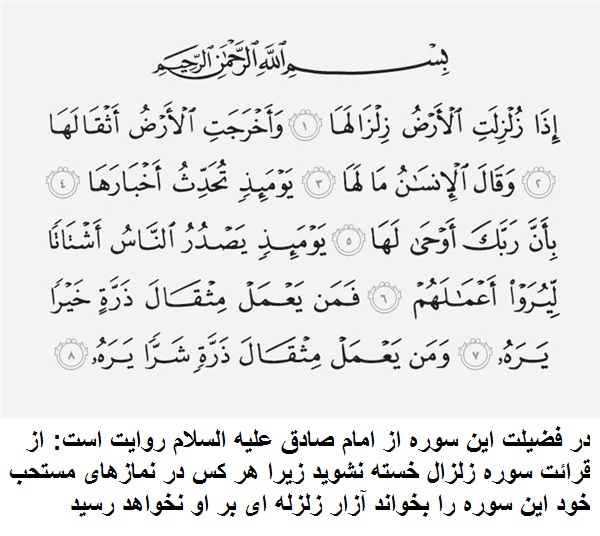 بِسْمِ اللَّهِ الرَّحْمَٰنِ الرَّحِيمِ
إِذَا زُلْزِلَتِ ٱلْأَرْضُ زِلْزَالَهَا ١ وَأَخْرَجَتِ ٱلْأَرْضُ أَثْقَالَهَا
٢ وَقَالَ ٱلْإِنسَٰنُ مَا لَهَا ٣ يَوْمَئِذٍ تُحَدِّثُ أَخْبَارَهَا ٤
بِأَنَّ رَبَّكَ أَوْحَىٰ لَهَا ٥ يَوْمَئِذٍ يَصْدُرُ ٱلنَّاسُ أَشْتَاتًا
لِّيُرَوْا۟ أَعْمَٰلَهُمْ ٦ فَمَن يَعْمَلْ مِثْقَالَ ذَرَّةٍ خَيْرًا
يَرَهُۥ ٧ وَمَن يَعْمَلْ مِثْقَالَ ذَرَّةٍ شَرًّا يَرَهُۥ ٨
در فضیلت این سوره از امام صادق علیه السلام روایت است: از
قرائت سوره زلزال خسته نشوید زیرا هر کس در نمازهای مستحب
خود این سوره را بخواند آزار زلزله ای بر او نخواهد رسید